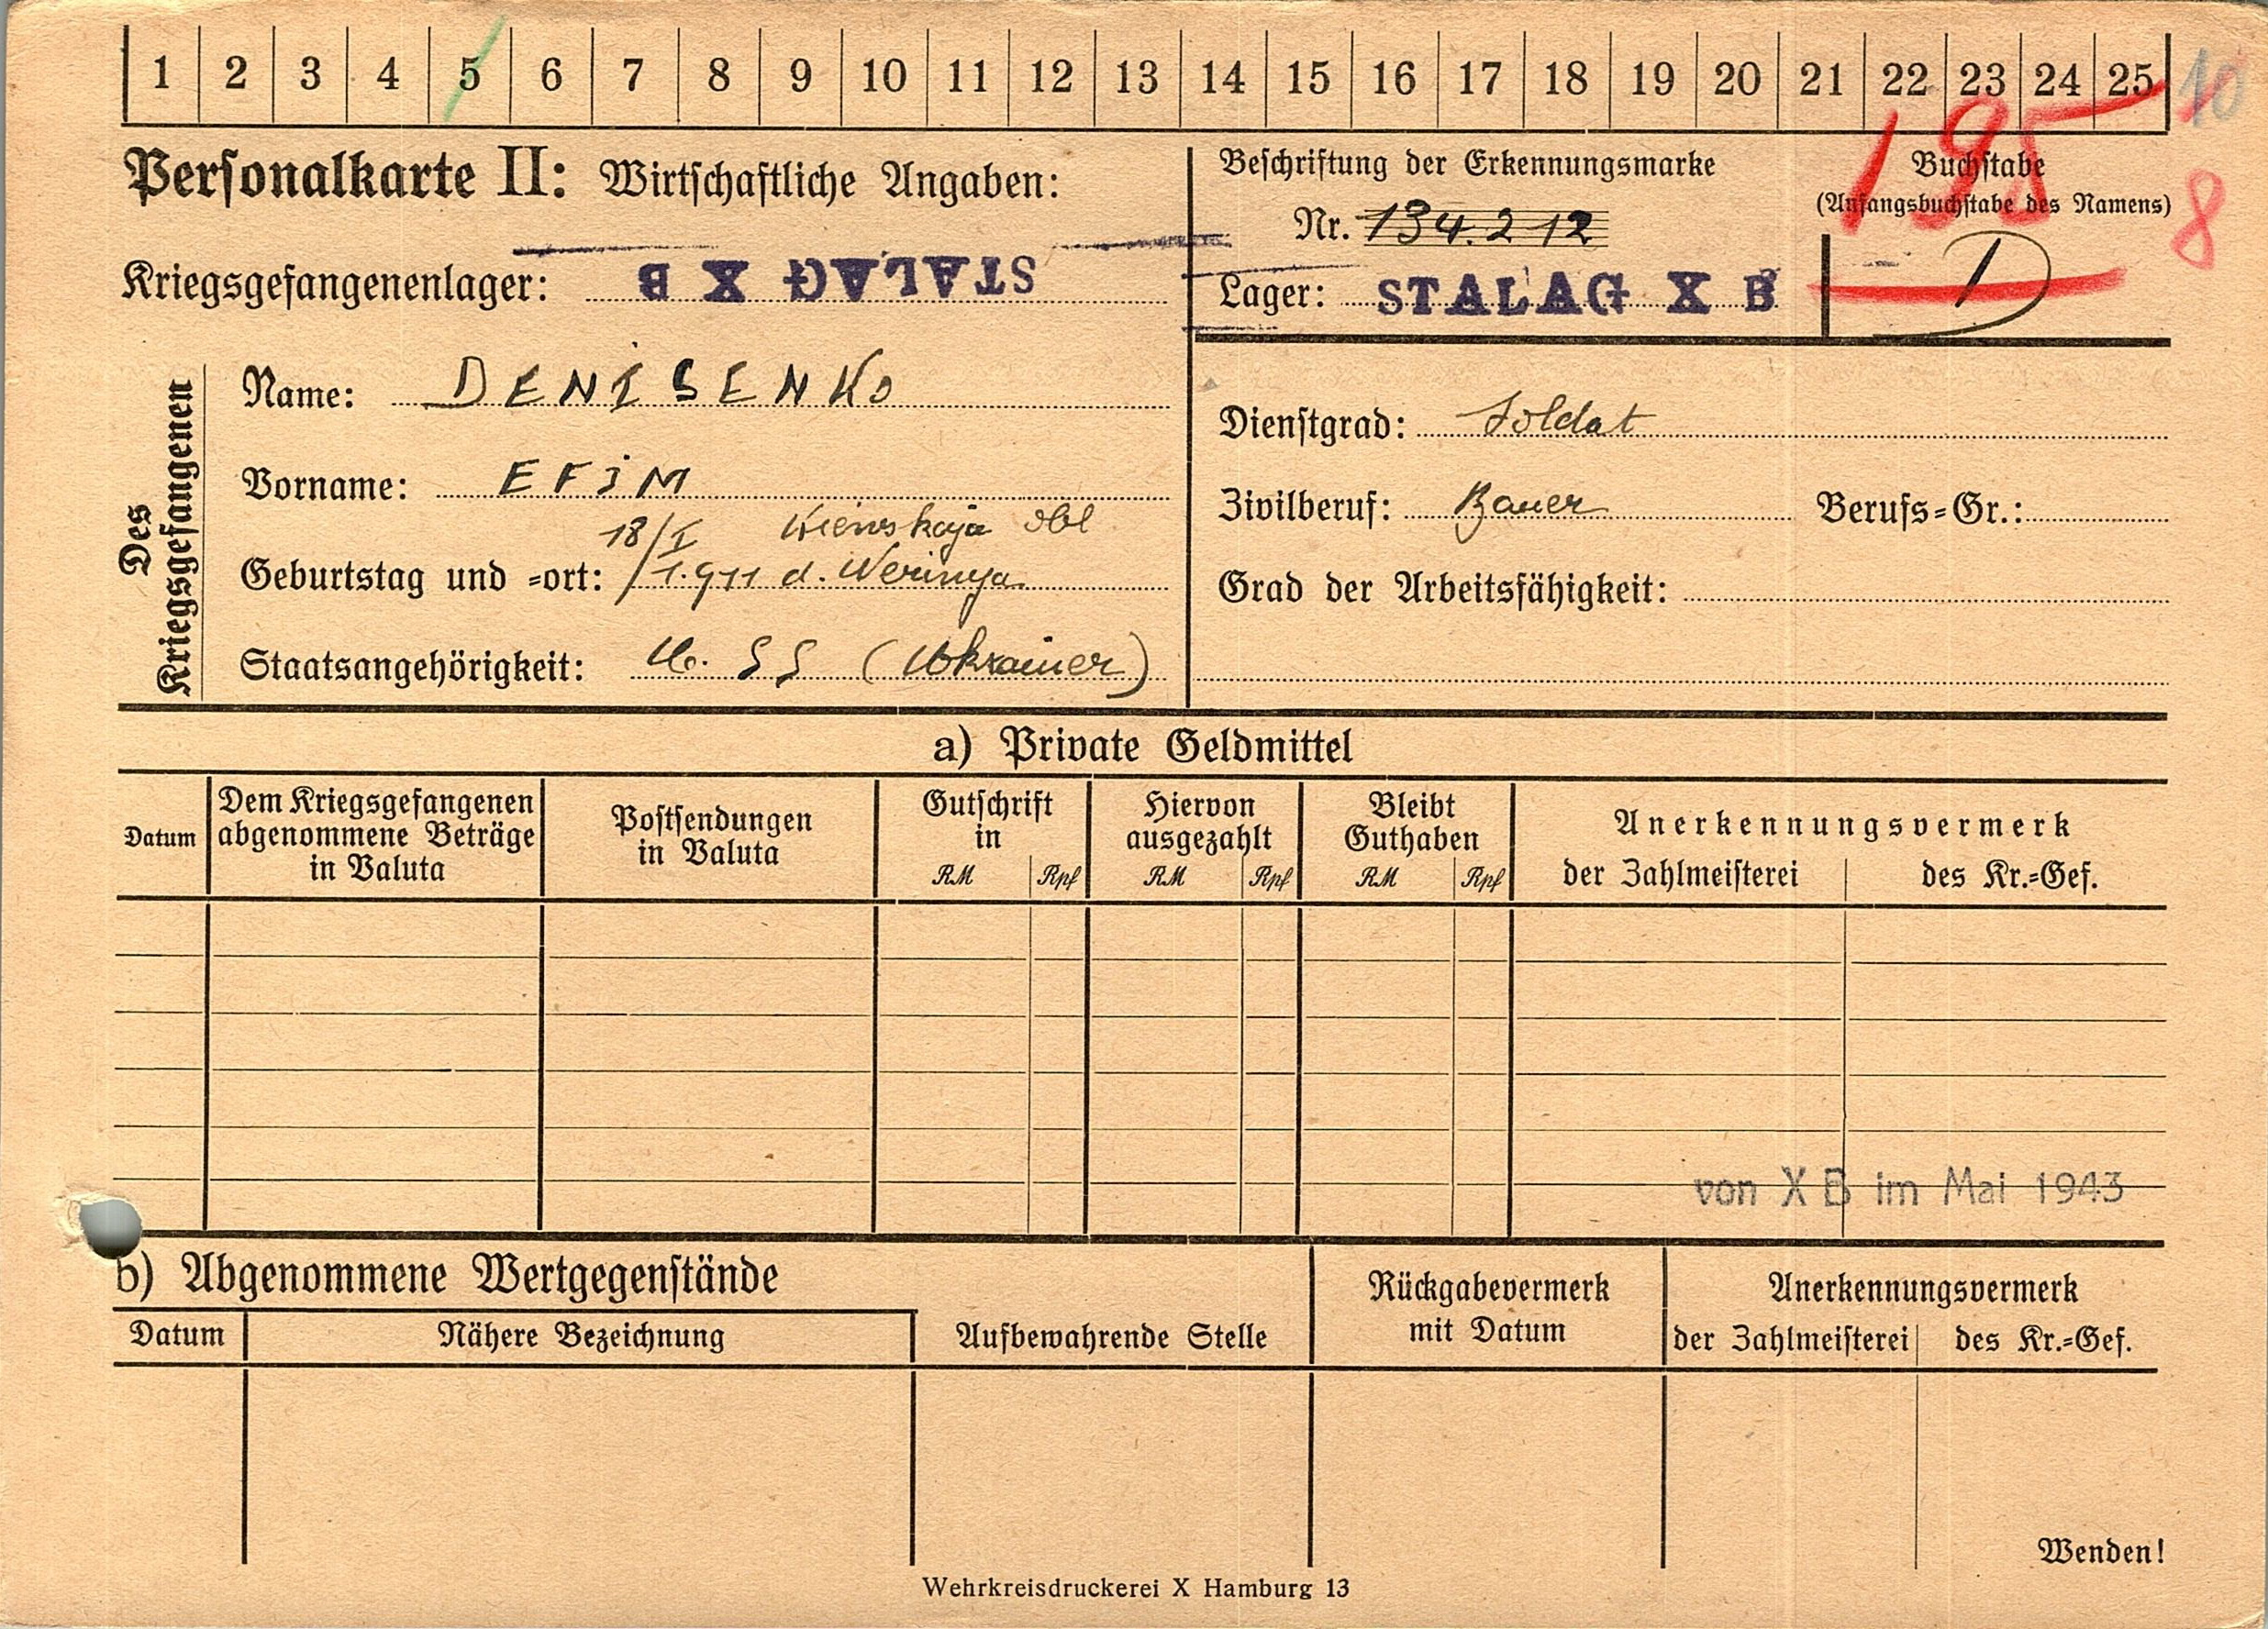 1 2 3 4 5 6 7 8 9 10 11 12 13 14 15 16 17 18 19 20 21 22 23 24 25 10
195
8
Personalkarte II: Wirtschaftliche Angaben:
Kriegsgefangenenlager: STALAG X B
Beschriftung der Erkennungsmarke
Nr. 134.212
Lager: STALAG X B
Buchstabe
(Anfangsbuchstabe des Namens)
D
Des Kriegsgefangenen
Name: DENISENKO
Vorname: EFIM
18/I Kiewskaja obl
Geburtstag und =ort: 1.911 d.
Staatsangehörigkeit: U. SS (Ukrainer)
Dienstgrad: Soldat
Zivilberuf: Bauer Berufs=Gr.:
Grad der Arbeitsfähigkeit:
a) Private Geldmittel
Datum
Dem Kriegsgefangenen
abgenommene Beträge
in Valuta
Postsendungen
in Valuta
Gutschrift
in
RM Rpf
Hiervon
ausgezahlt
RM Rpf
Bleibt
Guthaben
RM Rpf
Anerkennungsvermerk
der Zahlmeisterei des Kr.=Gef.
von X B im Mai 1943
b) Abgenommene Wertgegenstände
Datum
Nähere Bezeichnung
Aufbewahrende Stelle
Rückgabevermerk
mit Datum
Anerkennungsvermerk
der Zahlmeisterei des Kr.=Gef.
Wenden!
Wehrkreisdruckerei X Hamburg 13